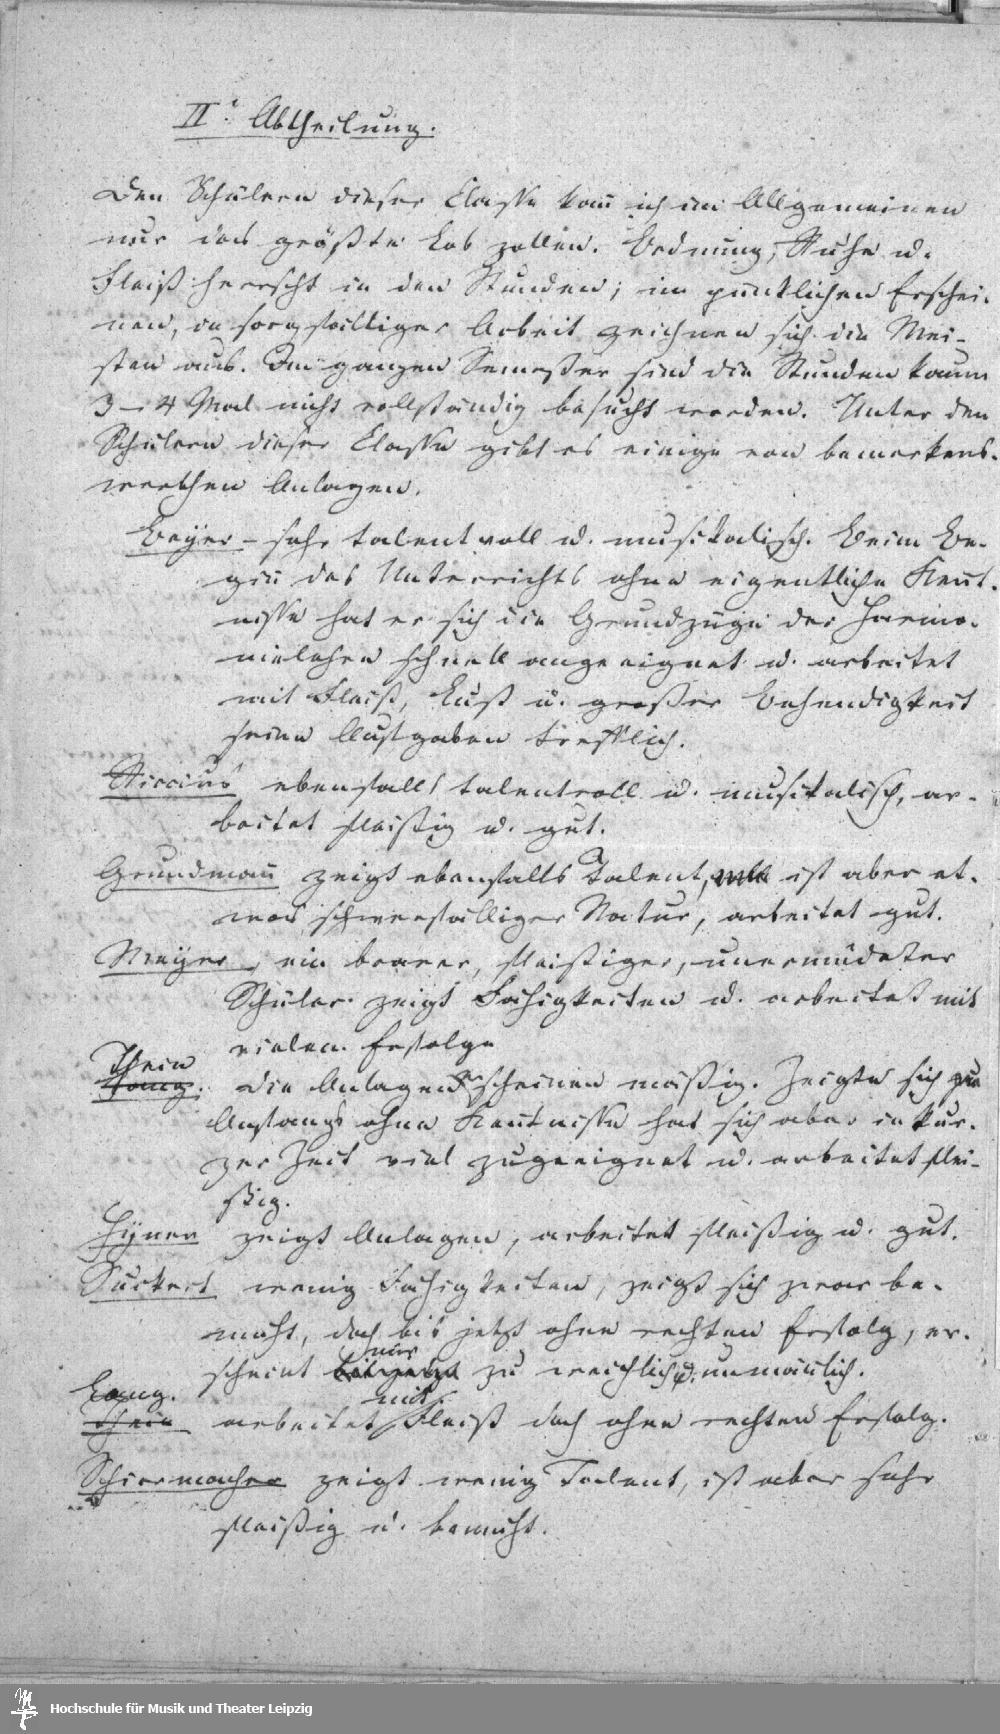 IIe. Abtheilung.
Den Schülern dieser Classe kañ ich im Allgemeinen
nur das größte Lob zollen. Ordnung, Ruhe u.
Fleiß herrscht in den Stunden; im pünktlichen Erschei-
nen, in sorgfältiger Arbeit zeichnen sich die Mei-
sten aus. Im ganzen Semester sind die Stunden kaum
3–4 Mal nicht vollständig besucht worden. Unter den
Schülern dieser Classe gibt es einige von bemerkens-
werthen Anlagen.
Beyer – sehr talentvoll u. musikalisch. Beim Be-
giñ des Unterrichts ohne eigentliche Keñt-
nisse hat er sich die Grundzüge der Harmo-
nielehre schnell angeeignet u. arbeitet
mit Fleiß, Lust u. großer Behendigkeit
seine Aufgaben trefflich.
Riccius ebenfalls talentvoll u. musikalisch, ar-
beitet fleißig u. gut.
Grundmañ zeigt ebenfalls Talent, ist aber et-
was schwerfälliger Natur, arbeitet gut.
Meyer, ein braver, fleißiger, unermüdeter
Schüler. zeigt Fähigkeiten u. arbeitet mit
vielem Erfolge
Thein
Lang. Die Anlagen scheinen mäßig. Zeigte sich
Anfangs ohne Keñtnisse hat sich aber in kur-
zer Zeit viel zugeeignet u. arbeitet flei-
ßig.
Hijnen zeigt Anlagen, arbeitet fleißig u. gut.
Suckert wenig Fähigkeiten, zeigt sich zwar be-
müht, doch bis jetzt ohne rechten Erfolg, er-
nur
scheint bis jetzt zu weichlich u. unmäñlich.
Lang. mit
Thein arbeitet Fleiß doch ohne rechten Erfolg.
Schirrmacher zeigt wenig Talent, ist aber sehr
fleißig u. bemüht.
Hochschule für Musik und Theater Leipzig